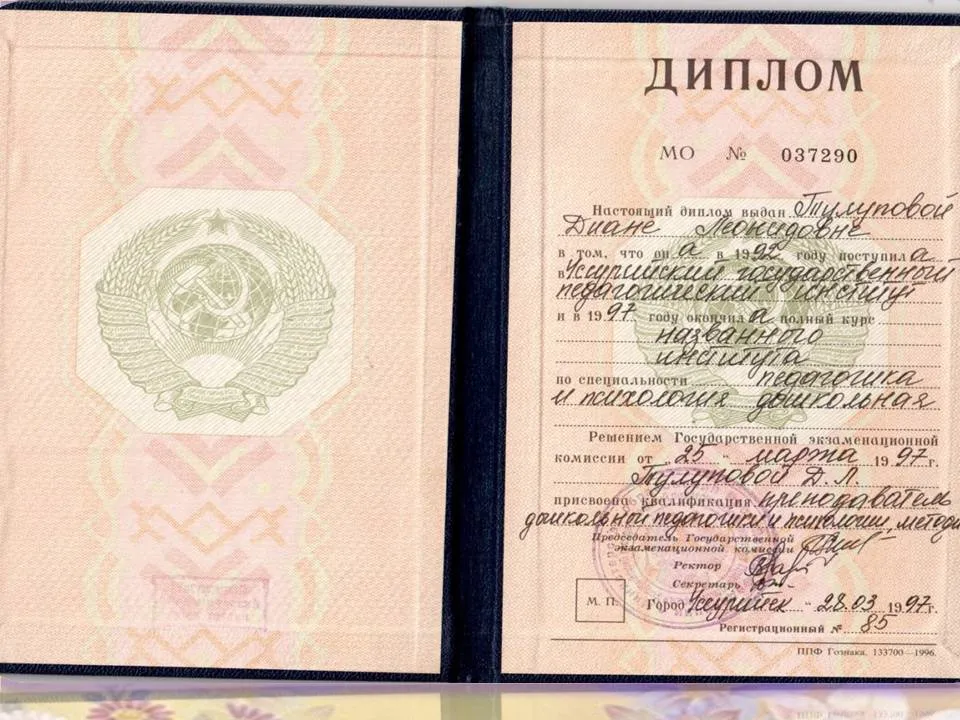 ДИПЛОМ
МО № 037290
Настоящий диплом выдан Тулуповой
Диане Леонидовне
в том, что он а в 1992 году поступил а
в Уссурийский государственный
педагогический институт
и в 1997 году окончил а полный курс
названного
института
по специальности педагогика
и психология дошкольная
Решением Государственной экзаменационной
комиссии от „ 25 “ марта 1997г.
Тулуповой Д. Л.
присвоена квалификация преподаватель
дошкольной педагогики и психологии, методи
Председатель Государственной
экзаменационной комиссии
Ректор
Секретарь
М. П. Город Уссурийск „ 28.03 1997г.
Регистрационный № 85
ППФ Гознака. 133700—1996.